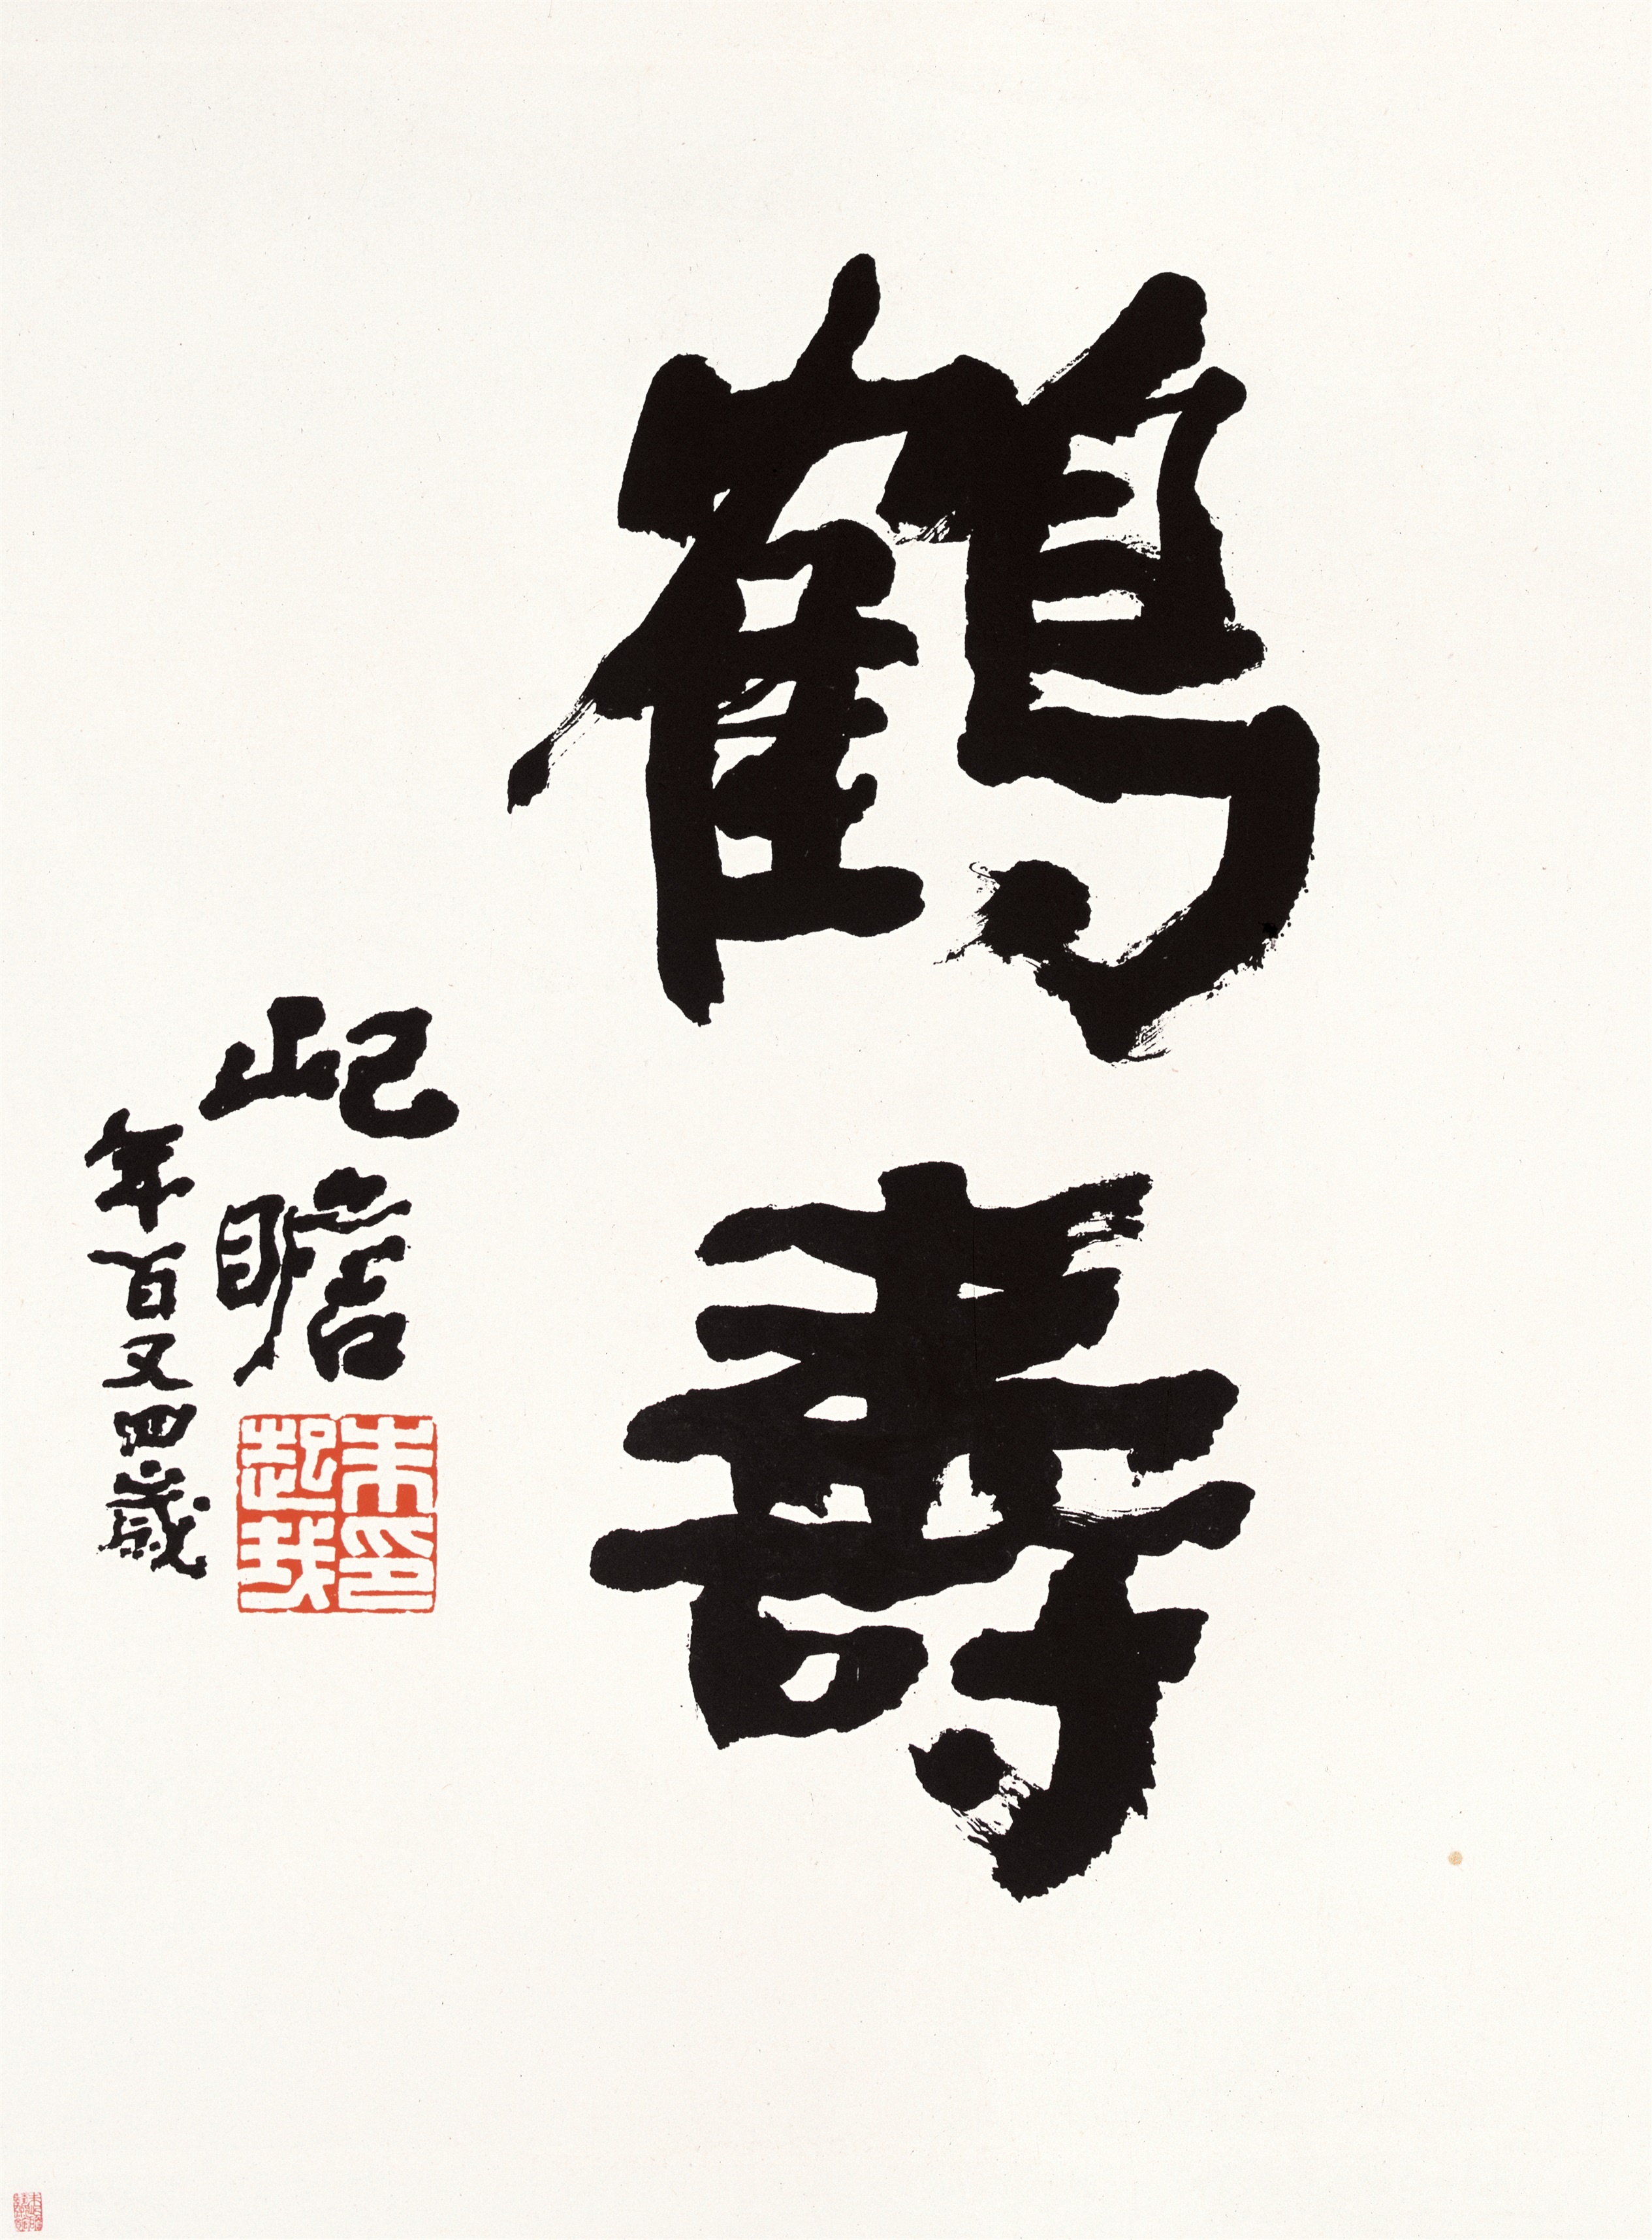 鶴壽
屺瞻
年百又四歲
朱屺瞻印